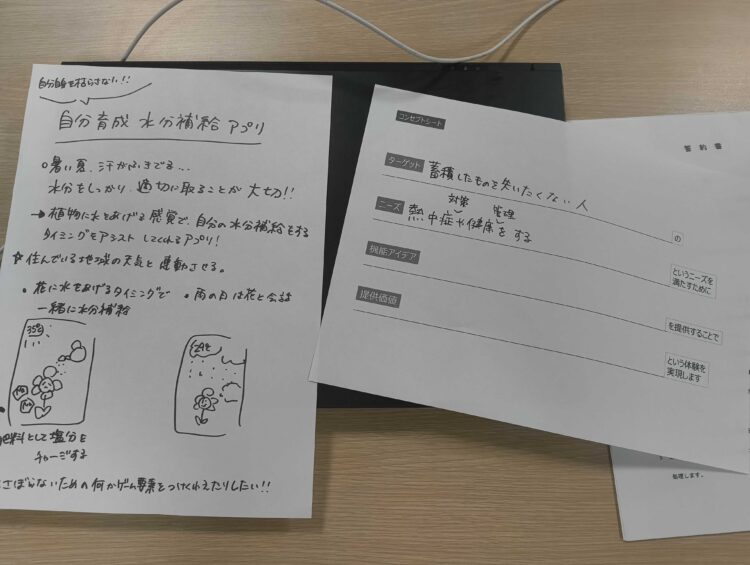 自分自身を枯らさない!!
自分育成 水分補給 アプリ
○暑い夏、汗がふきでる...
水分をしっかり、適切に取ることが 大切!!
→植物に水をあげる感覚で、自分の水分補給をする
タイミングをアシストしてくれるアプリ!
☆住んでいる地域の天気と連動させる。
・花に水をあげるタイミングで
一緒に水分補給
・雨の日は花と会話
35℃
29℃
肥料として塩分を
チャージする
さぼらないための何かゲーム要素をつけくわえたりしたい!!
コンセプトシート
ターゲット 蓄積したものを失いたくない人
の
ニーズ 熱中症対策や健康管理をする
というニーズを
満たすために
機能アイデア
を提供することで
提供価値
という体験を
実現します
誓 約 書
処理します。